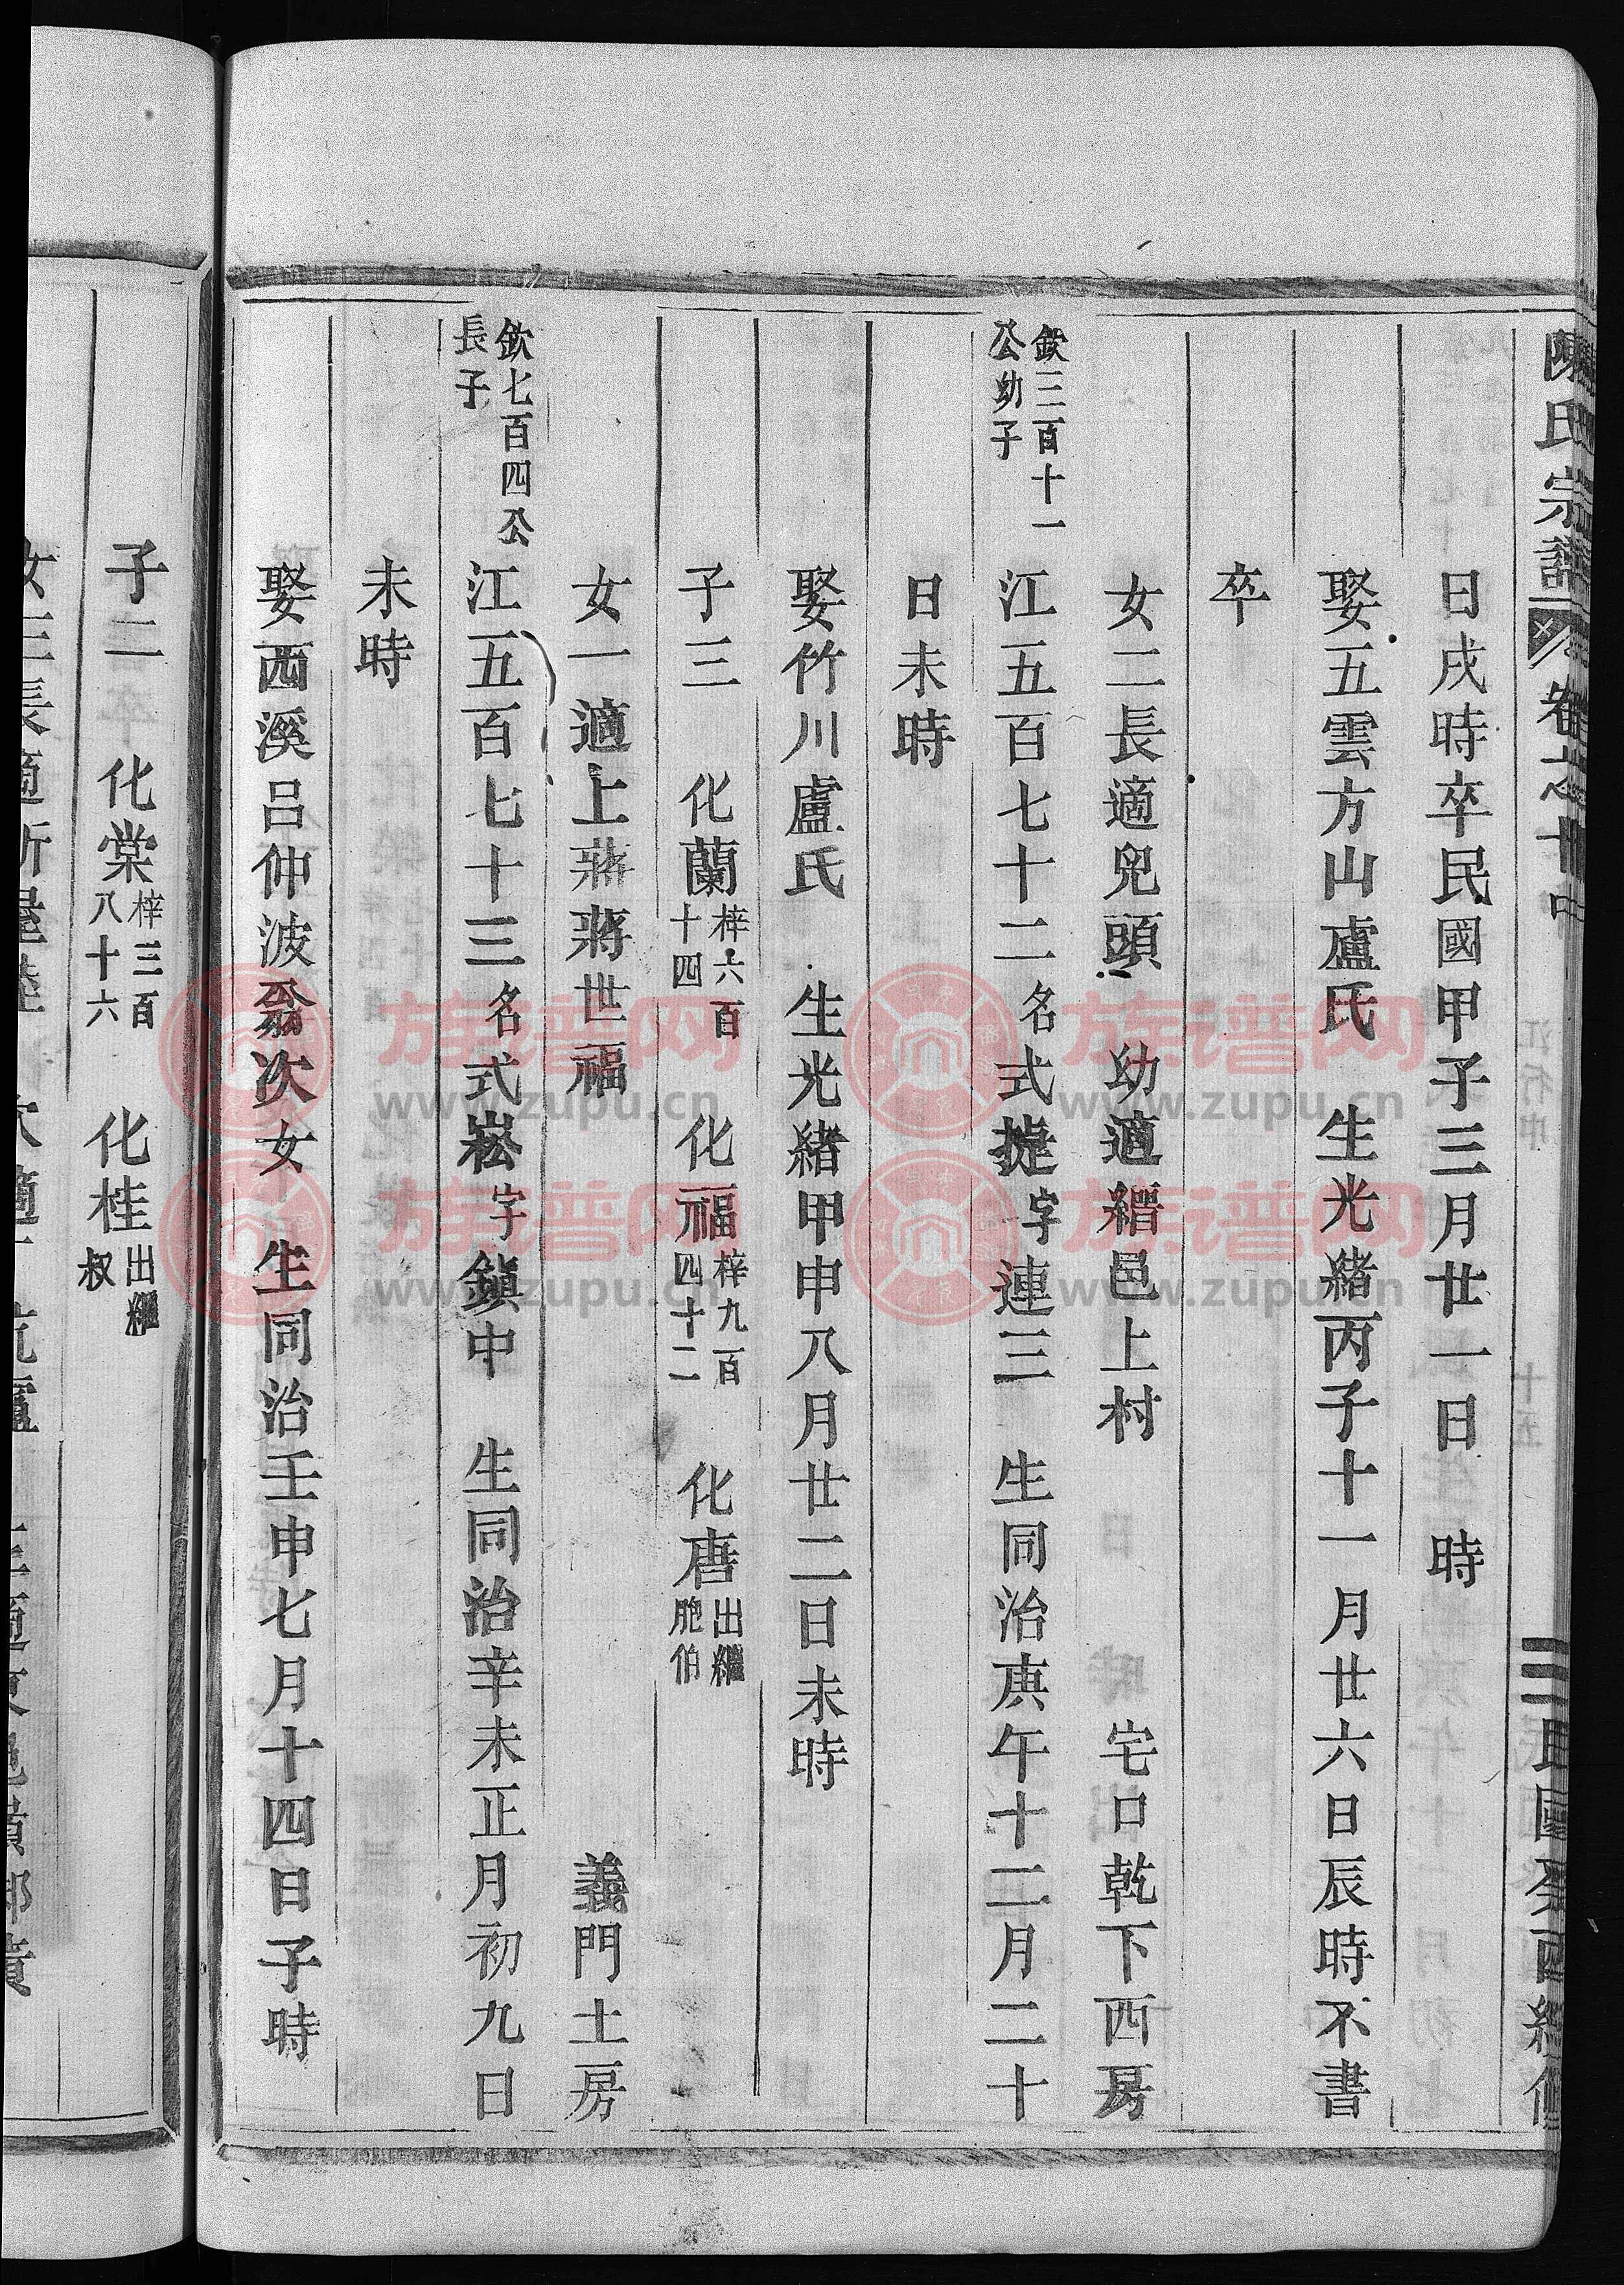 陳氏宗譜 卷之廿中 民國癸酉經修
日戌時卒民國甲子三月廿一日 時
娶五雲方山盧氏 生光緒丙子十一月廿六日辰時不書
卒
女二長適兜頭 幼適縉邑上村 宅口乾下西房
欽三百十一
公幼子
江五百七十二名式捷字連三 生同治庚午十二月二十
日未時
娶竹川盧氏 生光緒甲申八月廿二日未時
子三 化蘭梓六百十四 化福梓九百四十二 化唐出繼胞伯
女一適上蔣蔣世福 義門土房
欽七百四公
長子
江五百七十三名式崧字鎮中 生同治辛未正月初九日
未時
娶西溪呂仲波翁次女 生同治壬申七月十四日子時
子二 化棠梓三百八十六 化桂出繼叔
族谱网
www.zupu.cn
族谱网
www.zupu.cn
族谱网
www.zupu.cn
族谱网
www.zupu.cn